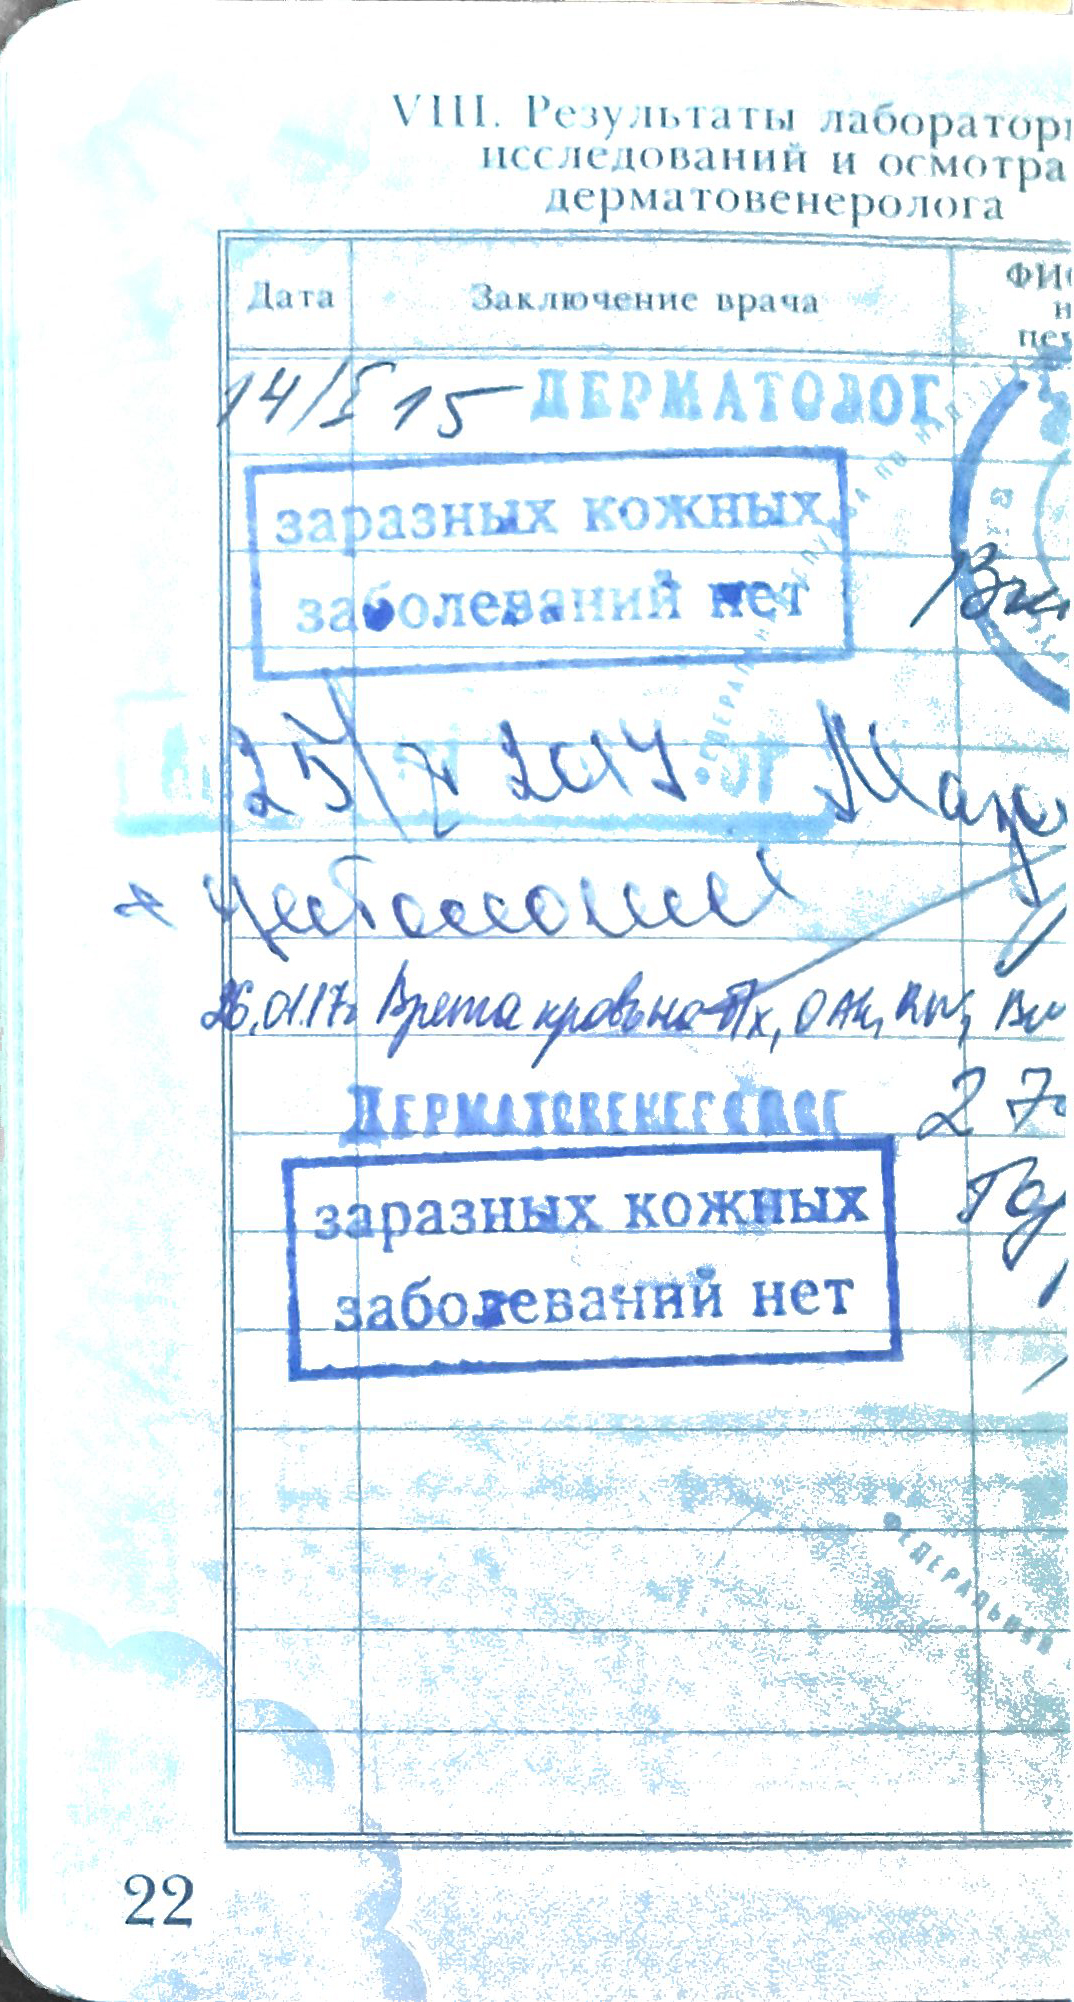 VIII. Результаты лаборатор
исследований и осмотра
дерматовенеролога
Дата Заключение врача ФИ
н
печ
14/I 15 ДЕРМАТОЛОГ
заразных кожных
заболеваний нет
25/I 2017 Мазо
+ цитология
26.01.17г Взята кровь на ОАК, RW,
ДЕРМАТОВЕНЕРОЛОГ 27
заразных кожных
заболеваний нет
ФЕДЕРАЛЬНАЯ
22